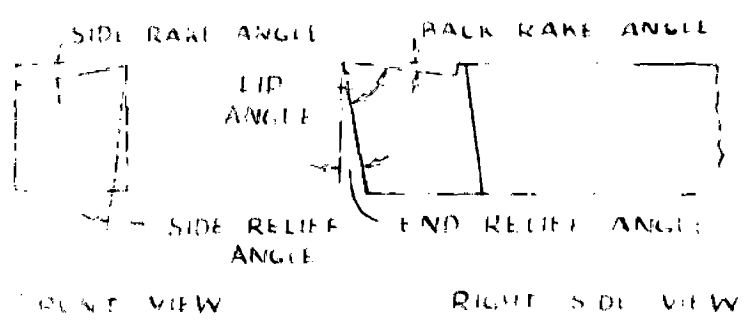 SIDE RAKE ANGLE
BACK RAKE ANGLE
LIP
ANGLE
SIDE RELIEF
ANGLE
END RELIEF ANGLE
FRONT VIEW
RIGHT SIDE VIEW